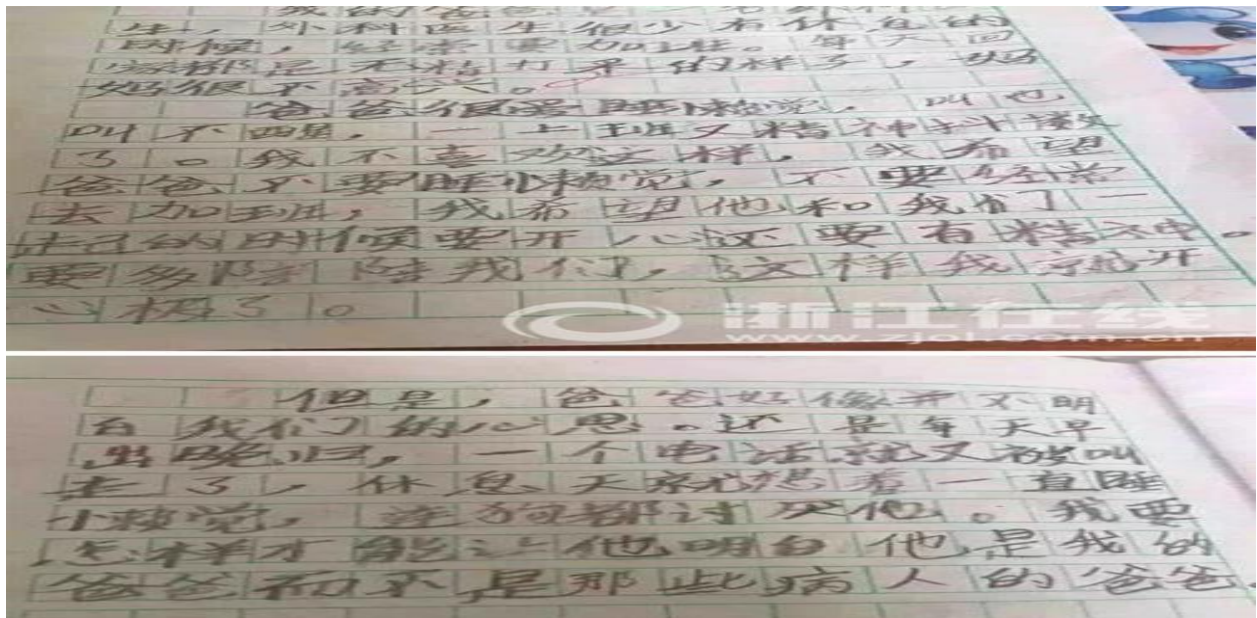 我的爸爸是一名外科医
生，外科医生很少有休息的
时候，经常要加班。每天回
家都是无精打采的样子，妈
妈很不高兴。
爸爸很爱睡懒觉，叫也
叫不醒，一上班又精神抖擞
了。我不喜欢这样，我希望
爸爸不要睡懒觉，不要经常
去加班，我希望他和我们一
起的时候要开心还要有精神。
要多陪陪我们，这样我就开
心极了。
浙江在线
www.zjol.com.cn
但是，爸爸好像并不明
白我们的心思。还是每天早
出晚归，一个电话就又被叫
走了，休息天就想着一直睡
懒觉，连狗都讨厌他。我要
怎样才能让他明白他是我的
爸爸而不是那些病人的爸爸。